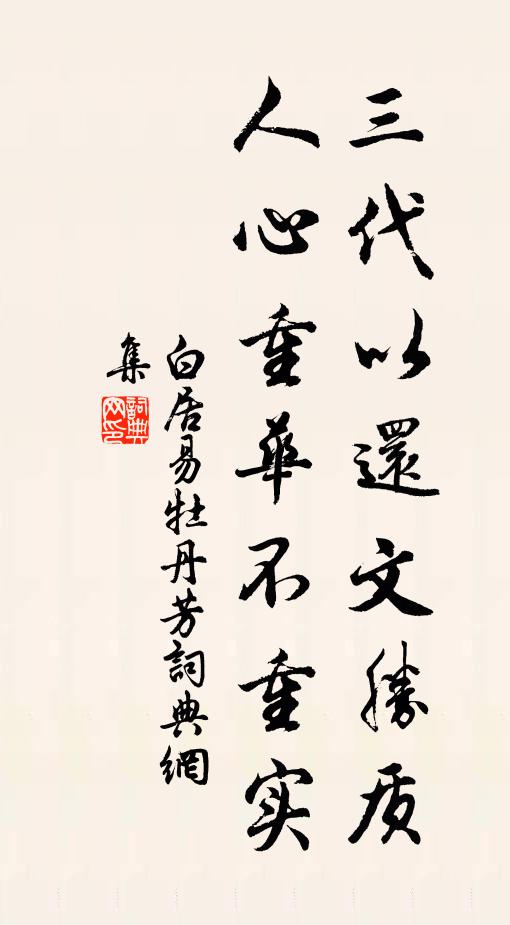 三代以還文勝质
人心重華不重实
白居易牡丹芳詞典網
集
詞典網印